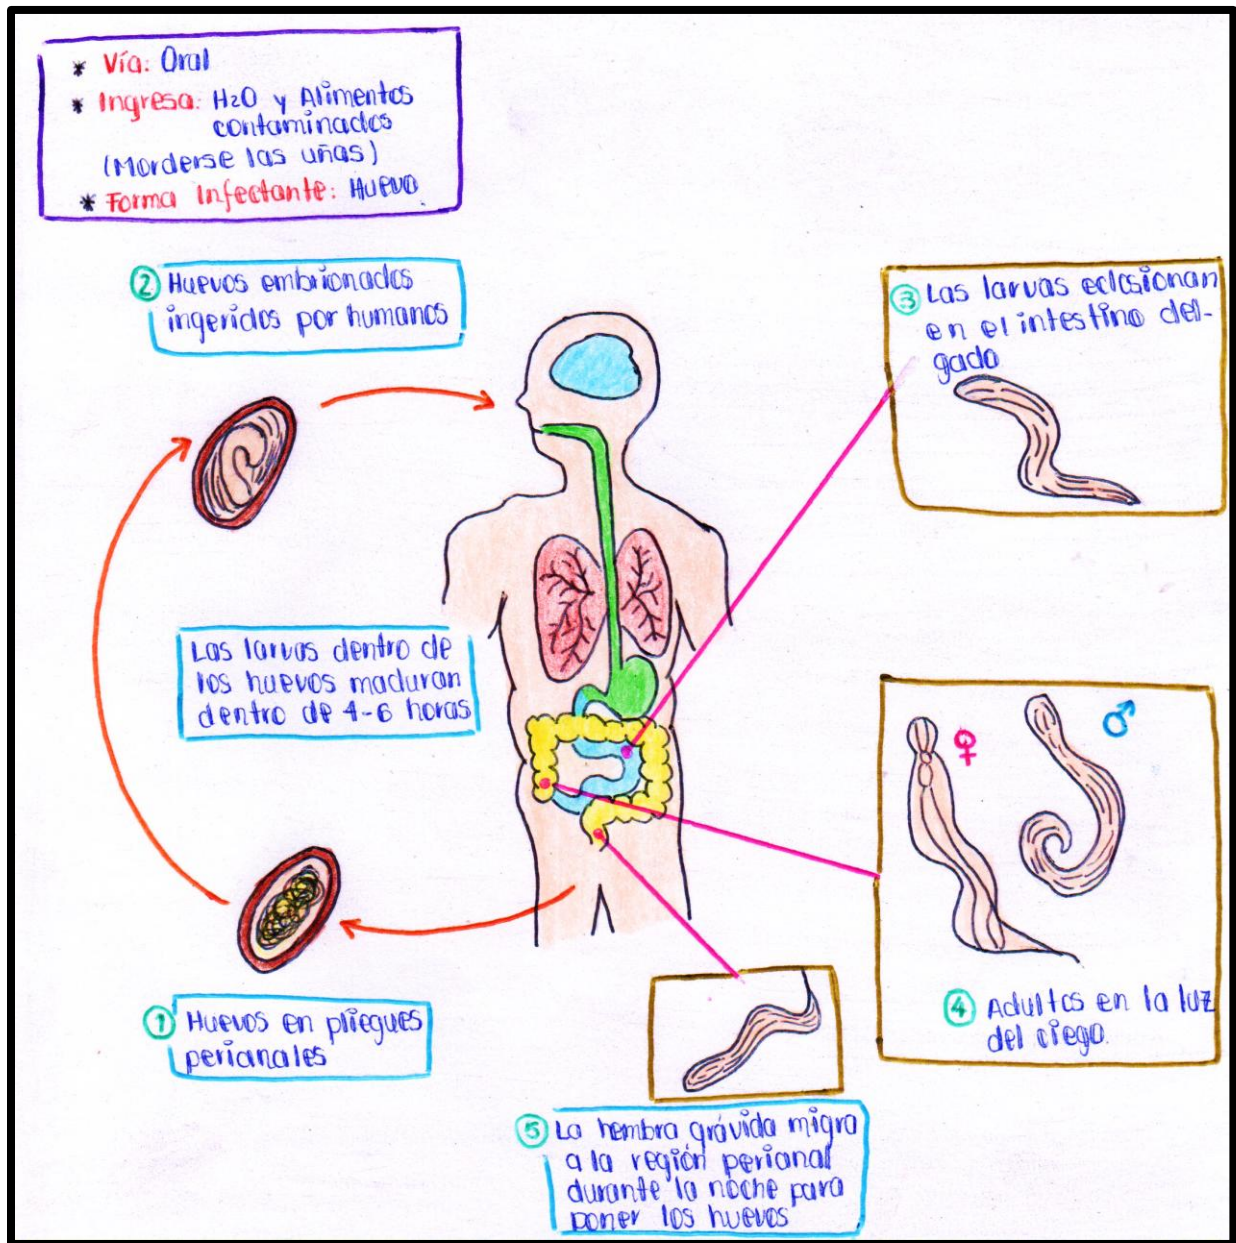 * Vía: Oral
* Ingresa: H2O y Alimentos
contaminados
(Morderse las uñas)
* Forma Infectante: Huevo.
② Huevos embrionados
ingeridos por humanos
③ Las larvas eclosionan
en el intestino del-
gado
Las larvas dentro de
los huevos maduran
dentro de 4-6 horas
♀ ♂
④ Adultos en la luz
del ciego.
① Huevos en pliegues
perianales
⑤ La hembra grávida migra
a la región perianal
durante la noche para
poner los huevos